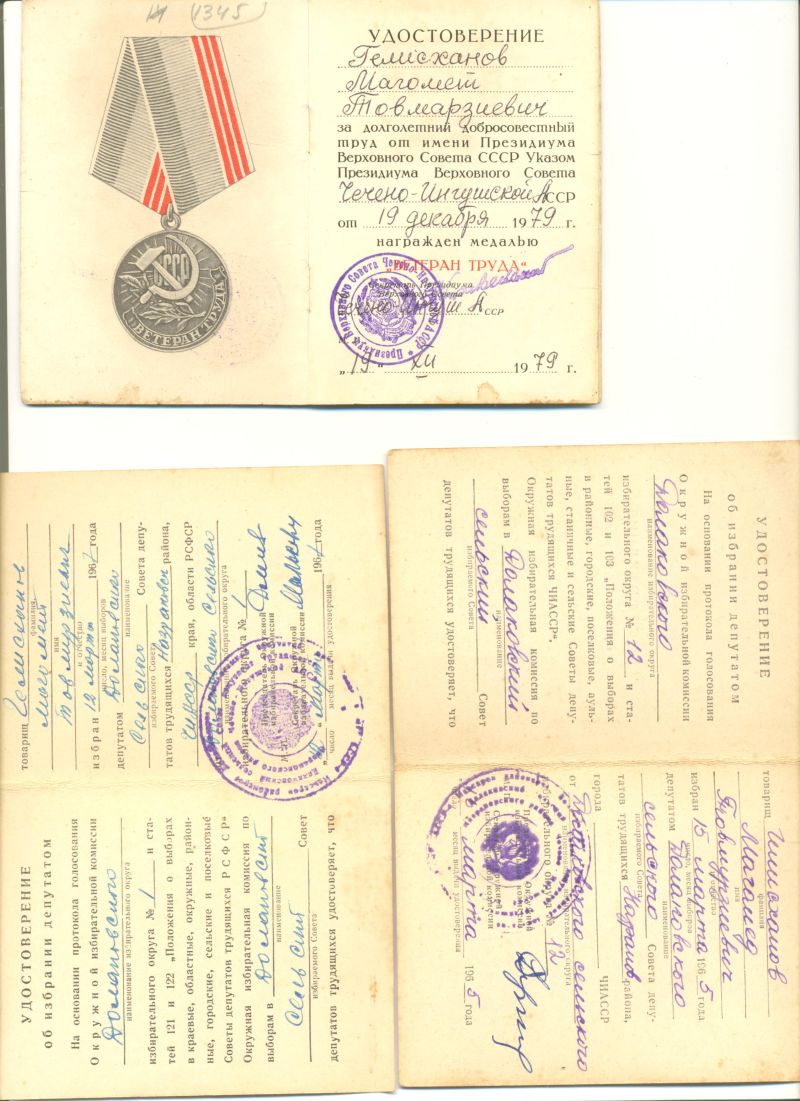 1345
СССР
ВЕТЕРАН ТРУДА
УДОСТОВЕРЕНИЕ
Гелисханов
Магомет
Товмарзиевич
за долголетний добросовестный
труд от имени Президиума
Верховного Совета СССР Указом
Президиума Верховного Совета
Чечено-Ингушской АССР
от 19 декабря 1979 г.
награжден медалью
„ВЕТЕРАН ТРУДА“
Секретарь Президиума
Верховного Совета
Чечено-Ингуш АССР
„19“ XII 1979 г.
УДОСТОВЕРЕНИЕ
об избрании депутатом
На основании протокола голосования
Окружной избирательной комиссии
наименование избирательного округа
избирательного округа № 1 и ста-
тей 121 и 122 „Положения о выборах
в краевые, областные, окружные, район-
ные, городские, сельские и поселковые
Советы депутатов трудящихся РСФСР“
Окружная избирательная комиссия по
выборам в
наименование
Совет
избираемого Совета
депутатов трудящихся удостоверяет, что
товарищ
фамилия
имя
и отчество
избран 12 марта 196 года
число, месяц выборов
депутатом
наименование
Совета депу-
избираемого Совета
татов трудящихся района,
края, области РСФСР
избирательного округа
избирательного округа № 1
Председатель Окружной
избирательной комиссии
М. П.
Секретарь Окружной
избирательной комиссии
марта 196 года
число месяц выдачи удостоверения
УДОСТОВЕРЕНИЕ
об избрании депутатом
На основании протокола голосования
Окружной избирательной комиссии
Долаковского
наименование избирательного округа
избирательного округа № 12 и ста-
тей 102 и 103 „Положения о выборах
в районные, городские, поселковые, ауль-
ные, станичные и сельские Советы депу-
татов трудящихся ЧИАССР“.
Окружная избирательная комиссия по
выборам в Долаковский
наименование
сельский Совет
избираемого Совета
депутатов трудящихся удостоверяет, что
товарищ
фамилия
Магомед
имя
и отчество
избран 15 марта 1965 года
число, месяц выборов
депутатом Долаковского
наименование
сельского Совета депу-
избираемого Совета
татов трудящихся района,
города ЧИАССР
от Долаковского сельского
избирательного округа № 12
марта 1965 года
месяц выдачи удостоверения